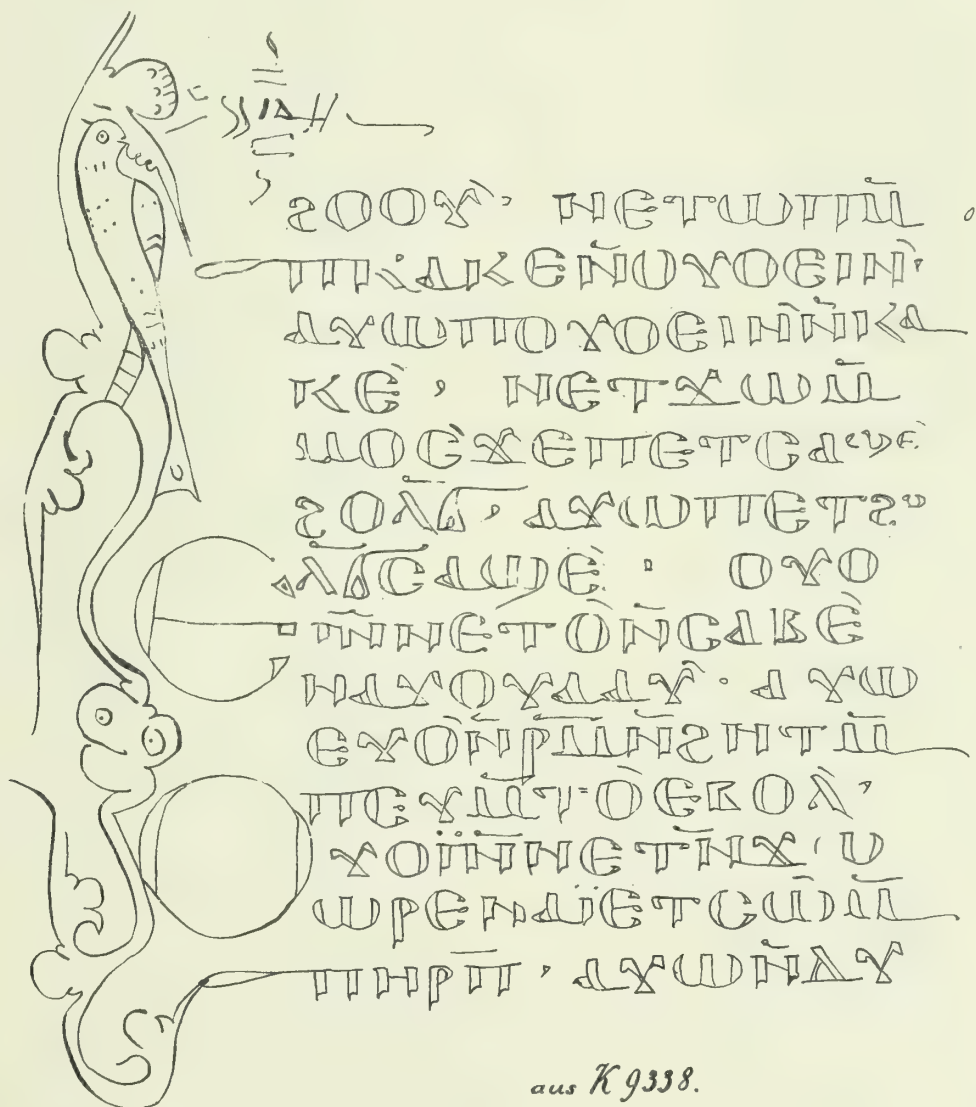 ϩⲟⲟⲩ̀· ⲛⲉⲧⲱⲡⲙ̄
ⲡⲕⲁⲕⲉⲛ̄ⲟⲩⲟⲉⲓⲛ̀·
ⲁⲩⲱⲡⲟⲩⲟⲉⲓⲛ̀ⲛ̄ⲕⲁ
ⲕⲉ̀, ⲛⲉⲧϫⲱⲙ̄
ⲙⲟⲥϫⲉⲡⲉⲧⲥⲁϣⲉ̀
ϩⲟⲗϭ̄· ⲁⲩⲱⲡⲉⲧϩⲟ
ⲗϭ̄ⲥⲁϣⲉ̀ · ⲟⲩⲟ
ⲉⲓⲛ̄ⲛⲉⲧⲟ̀ⲛ̄ⲥⲁⲃⲉ̀
ⲛⲁⲩⲟⲩⲁⲁⲧⲩ̀· ⲁⲩⲱ
ⲉⲩⲟ̀ⲛ̄ⲣⲙ̄ⲛ̄ϩⲏⲧⲙ̄
ⲡⲉⲩⲙ̄ⲧⲟ̀ⲉⲃⲟⲗ̀,
ⲟⲩⲟⲓ̈ⲛ̄ⲛⲉⲧⲛ̄ϫⲱ
ⲱⲣⲉⲛⲁⲓ̈ⲉⲧⲥⲱ̄ⲙ̄
ⲡⲏⲣⲡ̄, ⲁⲩⲱⲛ̄ⲇⲩ
aus K 9338.